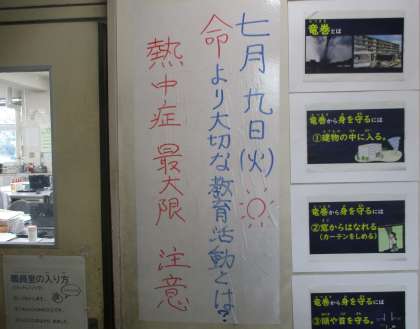 七月九日(火)
命より大切な教育活動とは?
熱中症 最大限 注意
竜巻とは
竜巻から身を守るには
①建物の中に入る。
竜巻から身を守るには
②窓からはなれる。
(カーテンをしめる)
竜巻から身を守るには
③頭や首を守る。
職員室の入り方